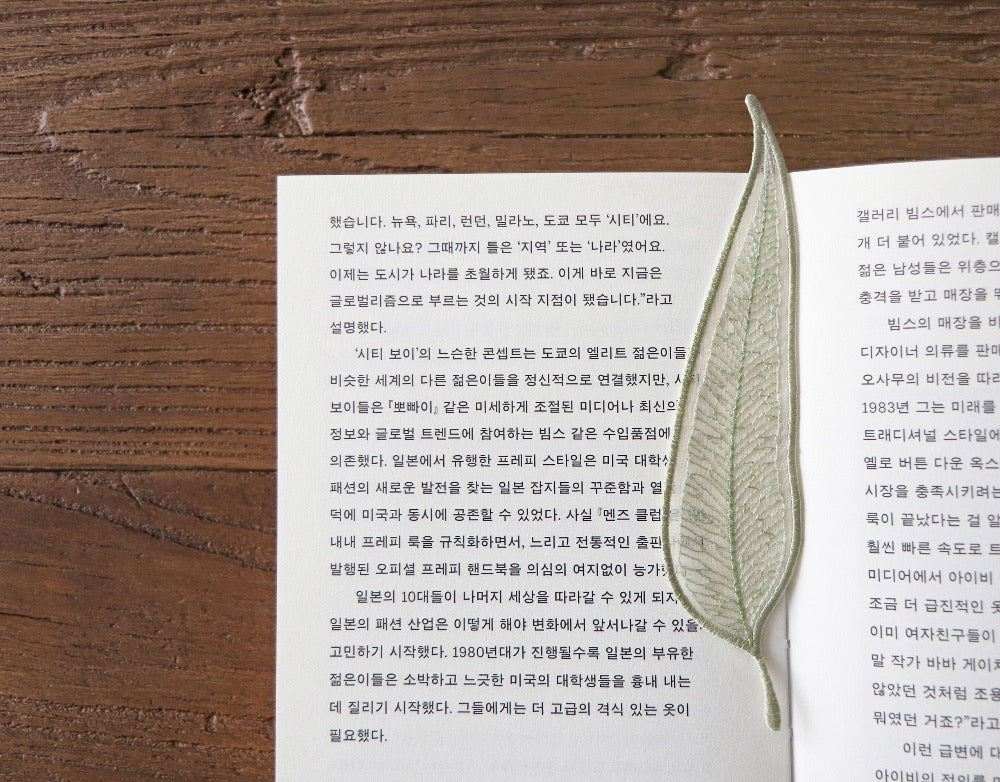 했습니다. 뉴욕, 파리, 런던, 밀라노, 도쿄 모두 ‘시티’에요.
그렇지 않나요? 그때까지 틀은 ‘지역’ 또는 ‘나라’였어요.
이제는 도시가 나라를 초월하게 됐죠. 이게 바로 지금은
글로벌리즘으로 부르는 것의 시작 지점이 됐습니다.”라고
설명했다.
‘시티 보이’의 느슨한 콘셉트는 도쿄의 엘리트 젊은이들
비슷한 세계의 다른 젊은이들을 정신적으로 연결했지만,
보이들은 『뽀빠이』 같은 미세하게 조절된 미디어나 최신의
정보와 글로벌 트렌드에 참여하는 빔스 같은 수입품점에
의존했다. 일본에서 유행한 프레피 스타일은 미국 대학생
패션의 새로운 발전을 찾는 일본 잡지들의 꾸준함과
덕에 미국과 동시에 공존할 수 있었다. 사실 『멘즈 클럽
내내 프레피 룩을 규칙화하면서, 느리고 전통적인 출판
발행된 오피셜 프레피 핸드북을 의심의 여지없이
일본의 10대들이 나머지 세상을 따라갈 수 있게 되자
일본의 패션 산업은 어떻게 해야 변화에서 앞서나갈 수 있을
고민하기 시작했다. 1980년대가 진행될수록 일본의 부유한
젊은이들은 소박하고 느긋한 미국의 대학생들을 흉내 내는
데 질리기 시작했다. 그들에게는 더 고급의 격식 있는 옷이
필요했다.
갤러리 빔스에서 판매
개 더 붙어 있었다.
젊은 남성들은 위층으
충격을 받고 매장을
빔스의 매장을
디자이너 의류를 판매
오사무의 비전을 따라
1983년 그는 미래를
트래디셔널 스타일에
옐로 버튼 다운
시장을 충족시키려는
룩이 끝났다는 걸
훨씬 빠른 속도로
미디어에서 아이비
조금 더 급진적인
이미 여자친구들이
말 작가 바바
않았던 것처럼
뭐였던 거죠?”라고
이런 급변에
아이비의 정의를